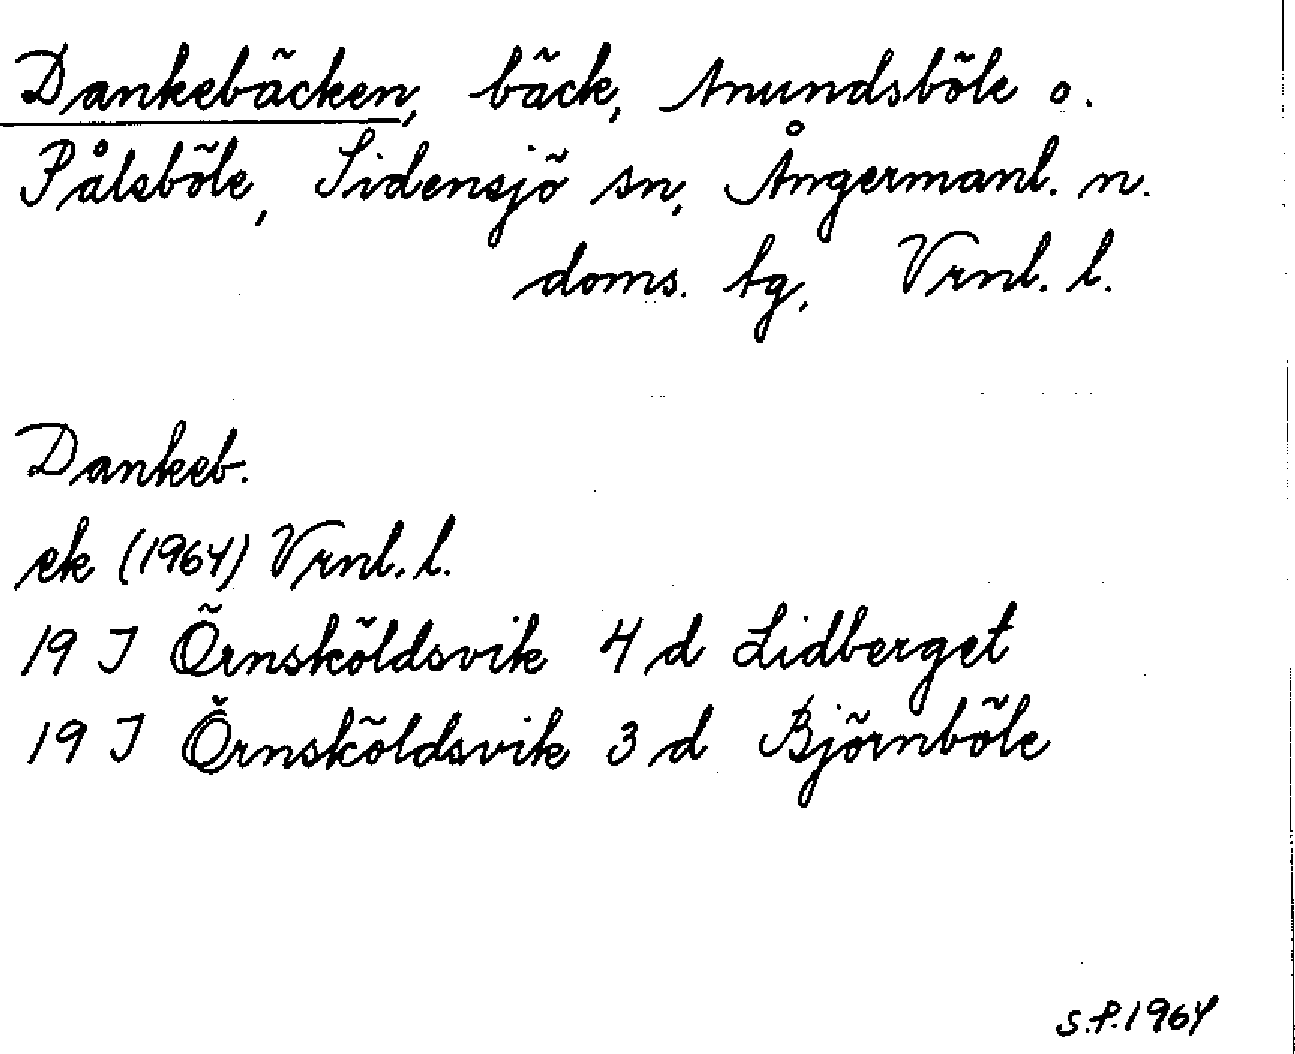 Dankebäcken, bäck, Anundsböle o.
Pålsböle, Sidensjö sn, Ångermanl. n.
doms. tg, Vrnl. l.
Dankeb.
ek (1964) Vrnl. l.
19 J Örnsköldsvik 4 d Lidberget
19 J Örnsköldsvik 3 d Björnböle
S.P. 1964